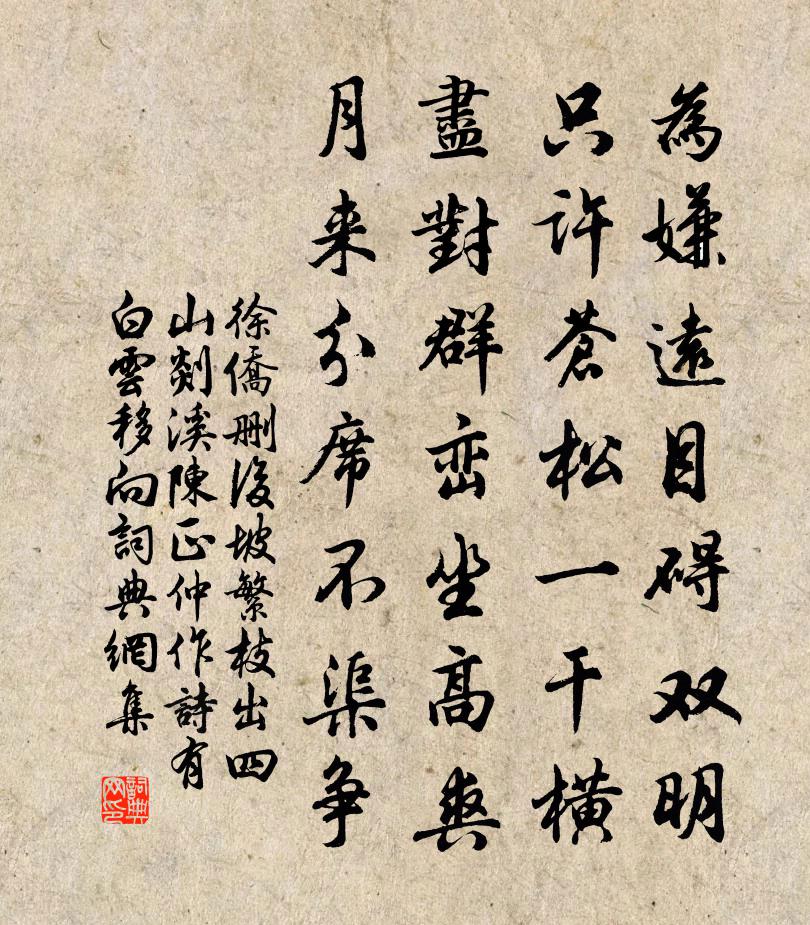 為嫌遠目碍双明
只許蒼松一干横
盡對群峦坐高爽
月来分席不渠争
徐僑删後坡繁枝出四
山剡溪陳正仲作詩有
白雲移向詞典網集
詞典
网印